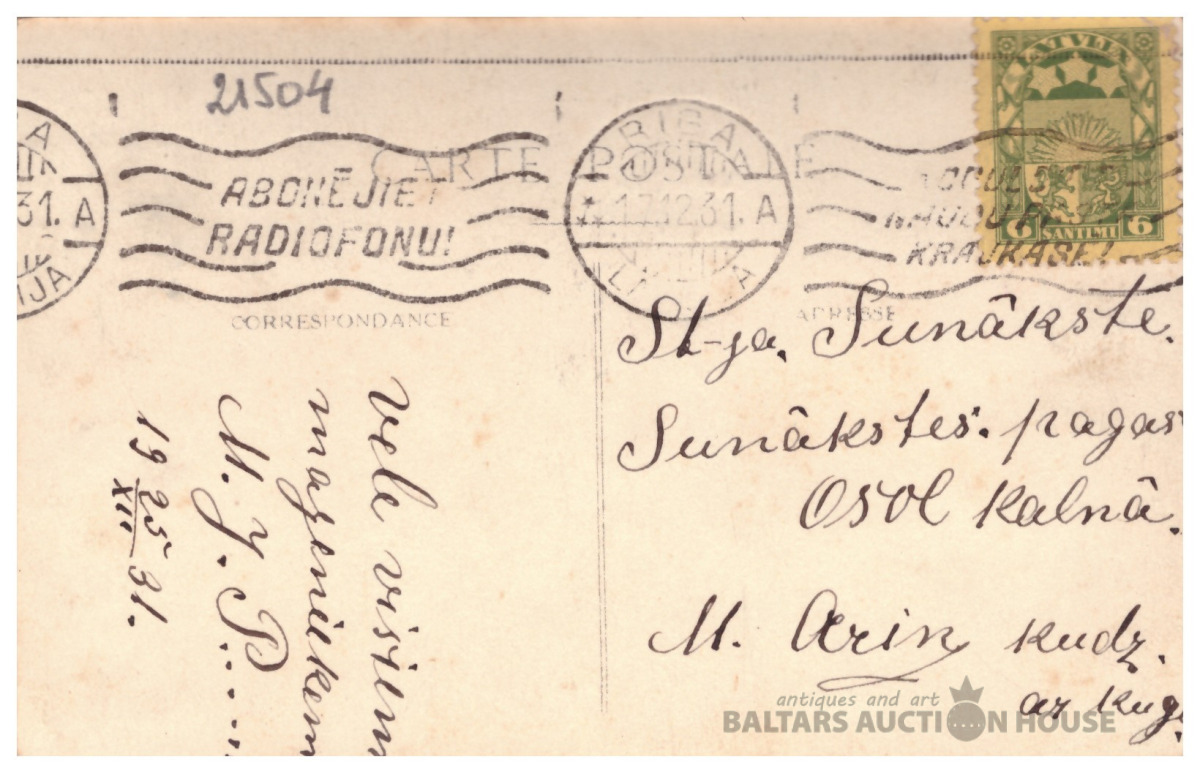 21504
LATVIJA
6 SANTIMI 6
CARTE POSTALE
RIGA
17.12.31. A
31. A
IJA
ABONĒJIET
RADIOFONU!
KRAJKASE!
CORRESPONDANCE
ADRESSE
St-ja. Sunākste.
Sunākstes. pagas
Osol Kalnā.
M. Arin kudz.
ar kug
Vele visiem
M. J. P......
19 25 31.
XII
antiques and art
BALTARS AUCTION HOUSE